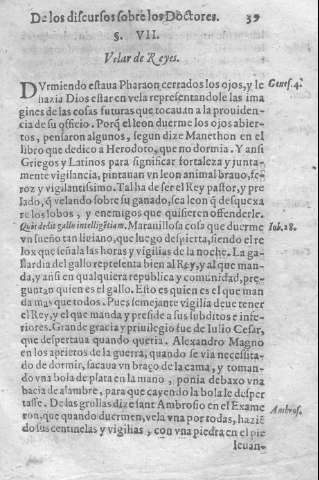 De los discursos sobre los Doctores. 39
§. VII.
Velar de Reyes.
DVrmiendo estaua Pharaon cerrados los ojos, y le Genes. 4.
hazia Dios estar en vela representandole las ima
gines de las cosas futuras que tocauan a la prouiden-
cia de su officio. Porq̃ el leon duerme los ojos abier-
tos, pensaron algunos, segun dize Manethon en el
libro que dedico a Herodoto, que no dormia. Y ansi
Griegos y Latinos para significar fortaleza y junta-
mente vigilancia, pintauan vn leon animal brauo, fe-
roz y vigilantissimo. Tal ha de ser el Rey pastor, y pre
lado, q̃ velando sobre su ganado, sea leon q̃ desquexa
re los lobos, y enemigos que quisieren offenderle.
Quis dedit gallo intelligẽtiam. Marauillosa cosa que duerme Iob. 28.
vn sueño tan liuiano, que luego despierta, siendo el re
lox que señala las horas y vigilias de la noche. La ga-
llardia del gallo representa bien al Rey, y al que man-
da, y ansi en qualquiera republica y comunidad, pre-
guntan quien es el gallo. Esto es quien es el que man
da mas que todos. Pues semejante vigilia deue tener
el Rey, y el que manda y preside a sus subditos e infe-
riores. Grande gracia y priuilegio fue de Iulio Cesar,
que despertaua quando queria. Alexandro Magno
en los aprietos de la guerra, quando se via necessita-
do de dormir, sacaua vn braço de la cama, y toman-
do vna bola de plata en la mano, ponia debaxo vna
bacia de alambre, para que cayendo la bola le desper
tasse. De las grullas dize sant Ambrosio en el Exame Ambros.
ron, que quando duermen, vela vna por todas, haziẽ
do sus centinelas y vigilias, con vna piedra en el pie
leuan-